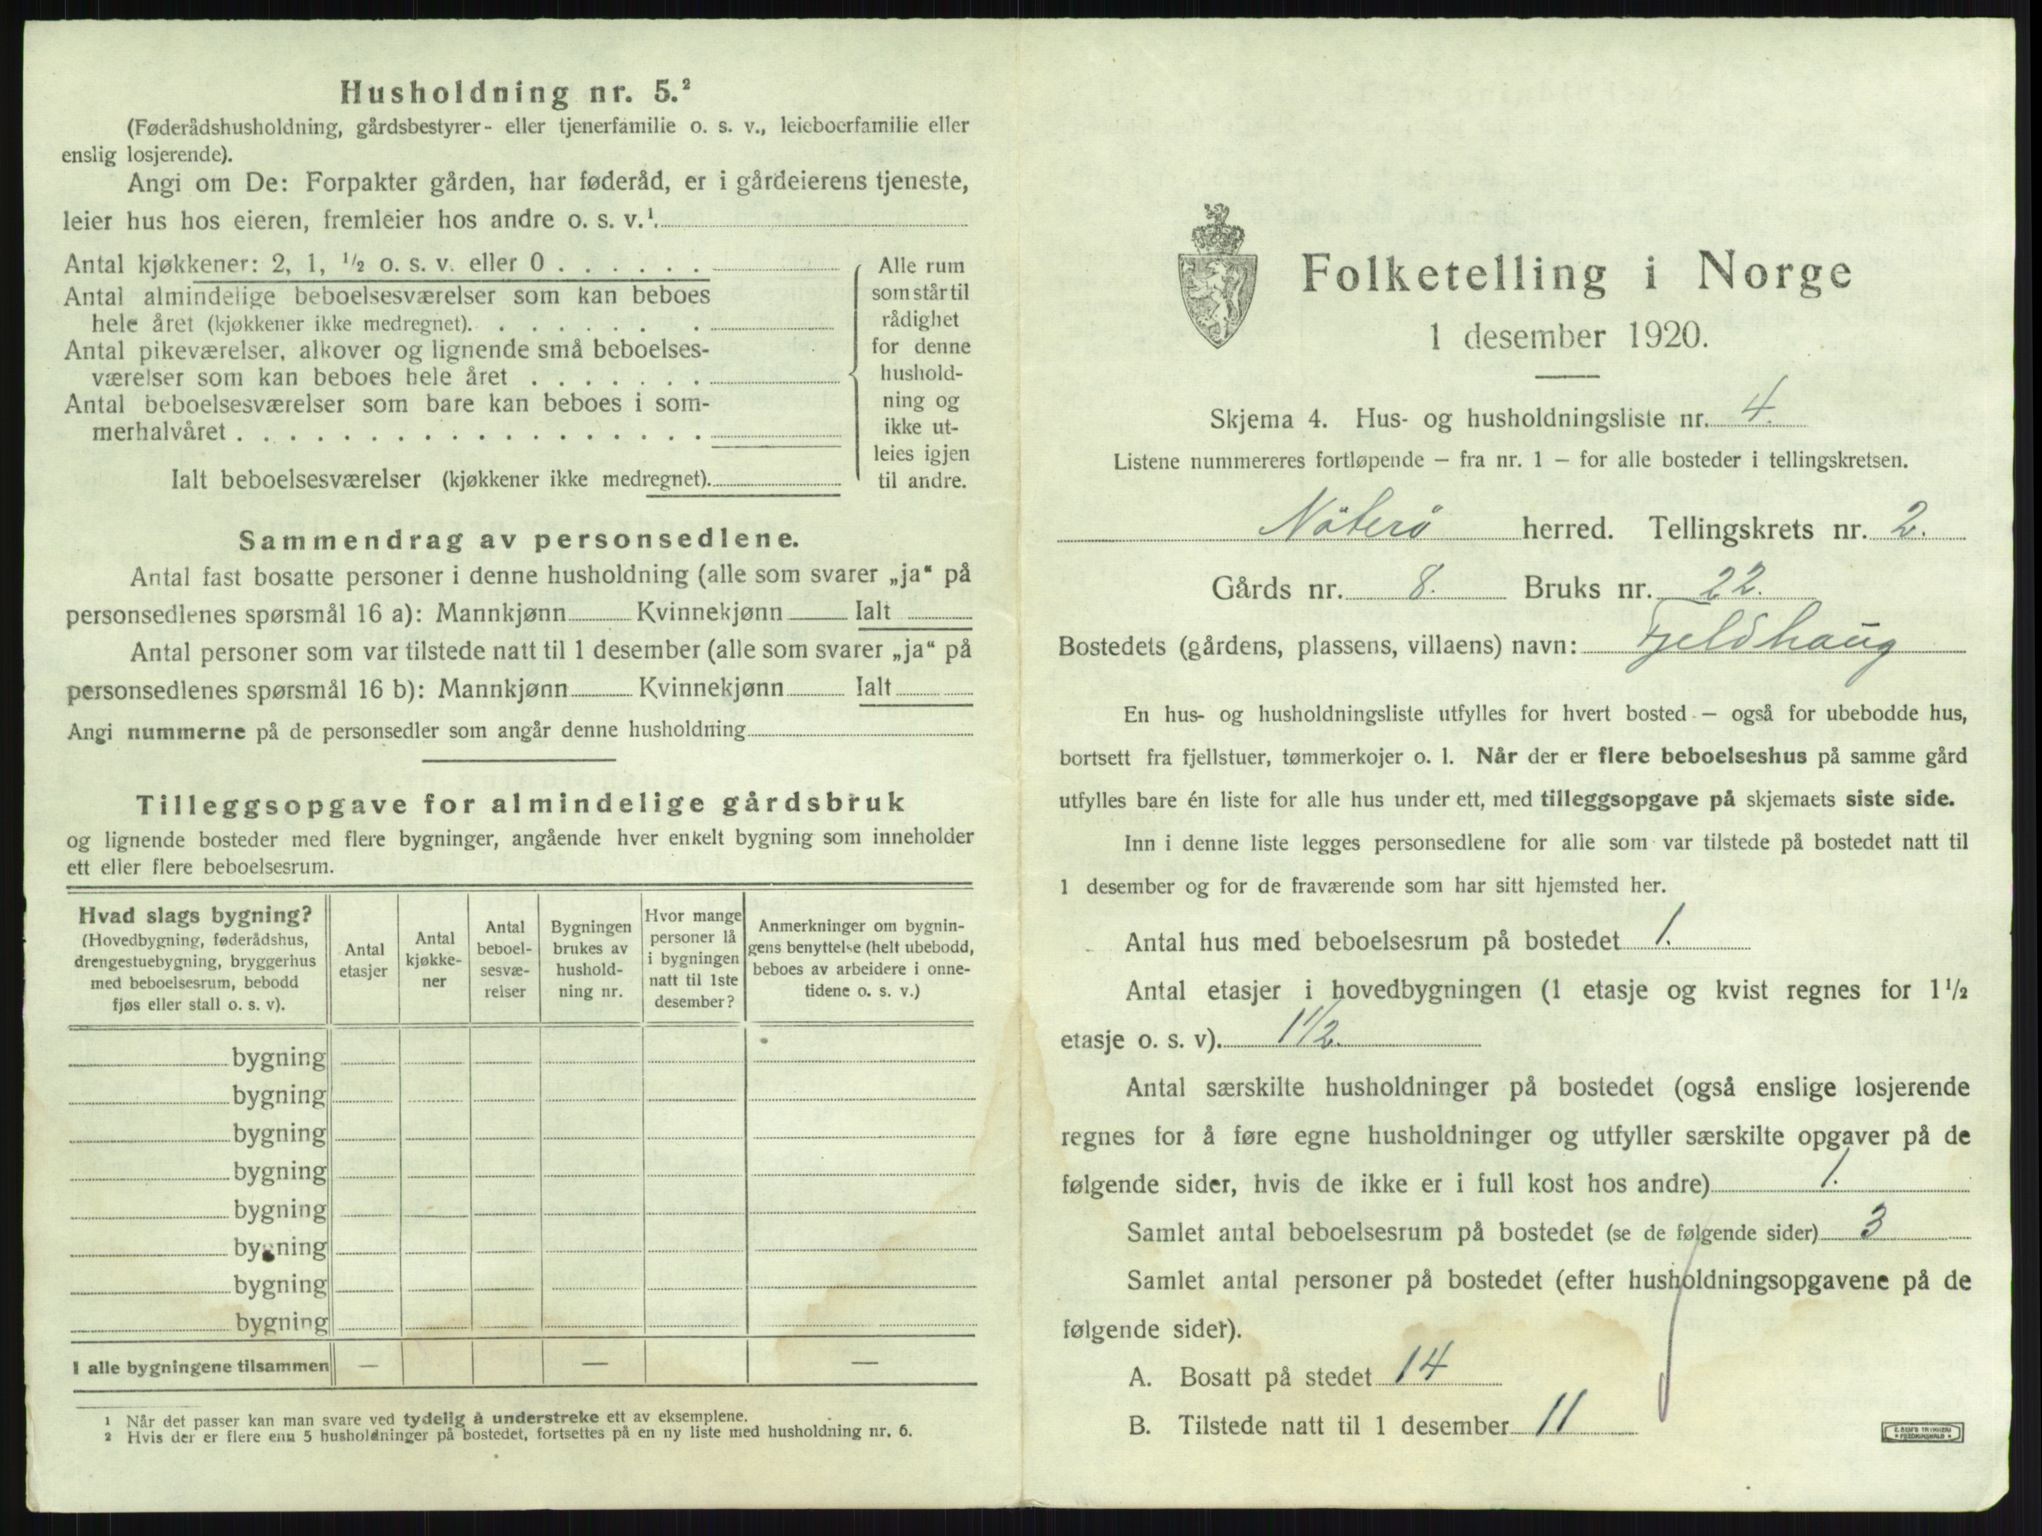 Husholdning nr. 5.²
(Føderådshusholdning, gårdsbestyrer- eller tjenerfamilie o. s. v., leieboerfamilie eller
enslig losjerende).
Angi om De: Forpakter gården, har føderåd, er i gårdeierens tjeneste,
leier hus hos eieren, fremleier hos andre o. s. v.¹
Antal kjøkkener: 2, 1, ½ o. s. v. eller 0 . . . . . .
Antal almindelige beboelsesværelser som kan beboes
hele året (kjøkkener ikke medregnet). . . . . . . .
Antal pikeværelser, alkover og lignende små beboelses-
værelser som kan beboes hele året . . . . . . .
Antal beboelsesværelser som bare kan beboes i som-
merhalvåret . . . . . . . . . . . . . . . . . .
Ialt beboelsesværelser (kjøkkener ikke medregnet).
Alle rum
som står til
rådighet
for denne
hushold-
ning og
ikke ut-
leies igjen
til andre.
Sammendrag av personsedlene.
Antal fast bosatte personer i denne husholdning (alle som svarer „ja“ på
personsedlenes spørsmål 16 a): Mannkjønn Kvinnekjønn Ialt
Antal personer som var tilstede natt til 1 desember (alle som svarer „ja“ på
personsedlenes spørsmål 16 b): Mannkjønn Kvinnekjønn Ialt
Angi nummerne på de personsedler som angår denne husholdning
Tilleggsopgave for almindelige gårdsbruk
og lignende bosteder med flere bygninger, angående hver enkelt bygning som inneholder
ett eller flere beboelsesrum.
Hvad slags bygning?
(Hovedbygning, føderådshus,
drengestuebygning, bryggerhus
med beboelsesrum, bebodd
fjøs eller stall o. s. v).
Antal
etasjer
Antal
kjøkke-
ner
Antal
beboel-
sesvæ-
relser
Bygningen
brukes av
hushold-
ning nr.
Hvor mange
personer lå
i bygningen
natt til 1ste
desember?
Anmerkninger om bygnin-
gens benyttelse (helt ubebodd,
beboes av arbeidere i onne-
tidene o. s. v.)
bygning
bygning
bygning
bygning
bygning
bygning
bygning
bygning
I alle bygningene tilsammen — — —
1 Når det passer kan man svare ved tydelig å understreke ett av eksemplene.
2 Hvis der er flere enn 5 husholdninger på bostedet, fortsettes på en ny liste med husholdning nr. 6.
Folketelling i Norge
1 desember 1920.
Skjema 4. Hus- og husholdningsliste nr. 4.
Listene nummereres fortløpende — fra nr. 1 — for alle bosteder i tellingskretsen.
Nöterö herred. Tellingskrets nr. 2.
Gårds nr. 8. Bruks nr. 22.
Bostedets (gårdens, plassens, villaens) navn: Fjeldhaug
En hus- og husholdningsliste utfylles for hvert bosted — også for ubebodde hus,
bortsett fra fjellstuer, tømmerkojer o. l. Når der er flere beboelseshus på samme gård
utfylles bare én liste for alle hus under ett, med tilleggsopgave på skjemaets siste side.
Inn i denne liste legges personsedlene for alle som var tilstede på bostedet natt til
1 desember og for de fraværende som har sitt hjemsted her.
Antal hus med beboelsesrum på bostedet 1.
Antal etasjer i hovedbygningen (1 etasje og kvist regnes for 1½
etasje o. s. v). 1½.
Antal særskilte husholdninger på bostedet (også enslige losjerende
regnes for å føre egne husholdninger og utfyller særskilte opgaver på de
følgende sider, hvis de ikke er i full kost hos andre) 1.
Samlet antal beboelsesrum på bostedet (se de følgende sider) 3
Samlet antal personer på bostedet (efter husholdningsopgavene på de
følgende sider).
A. Bosatt på stedet 14
B. Tilstede natt til 1 desember 11